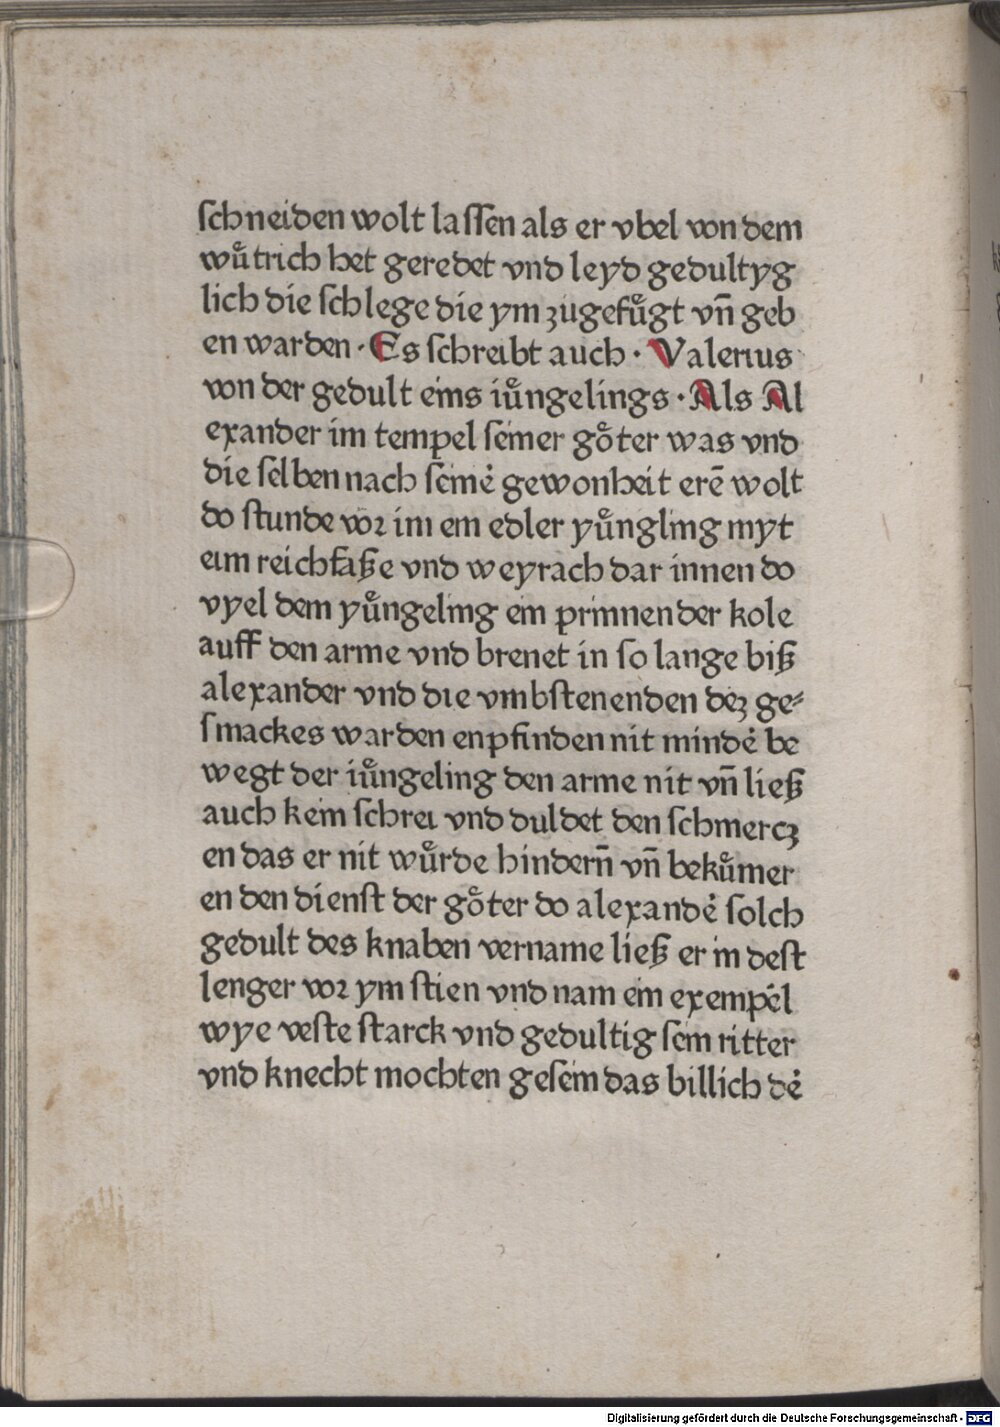 ſchneiden wolt laſſen als er vbel von dem
wuͤtrich het geredet vnd leyd gedultyg
lich die ſchlege die ym zugefuͤgt vn̄ geb
en warden · Es ſchreibt auch · Valerius
von der gedult eins iuͤngelings · Als Al
exander im tempel ſeiner goͤter was vnd
die ſelben nach ſeinė gewonheit erē wolt
do ſtunde vor im ein edler yuͤngling myt
eim reichfaße vnd weyrach dar innen do
vyel dem yuͤngeling ein prinnender kole
auff den arme vnd brenet in ſo lange biß
alexander vnd die vmbſtenenden dez ge⸗
ſmackes warden enpfinden nit mindė be
wegt der iuͤngeling den arme nit vn̄ ließ
auch kein ſchrei vnd duldet den ſchmercz
en das er nit wuͤrde hindern̄ vn̄ bekuͤmer
en den dienſt der goͤter do alexandė ſolch
gedult des knaben vername ließ er in deſt
lenger vor ym ſtien vnd nam ein exempėl
wye veſte ſtarck vnd gedultig ſein ritter
vnd knecht mochten geſein das billich dė
Digitalisierung gefördert durch die Deutsche Forschungsgemeinschaft - DFG